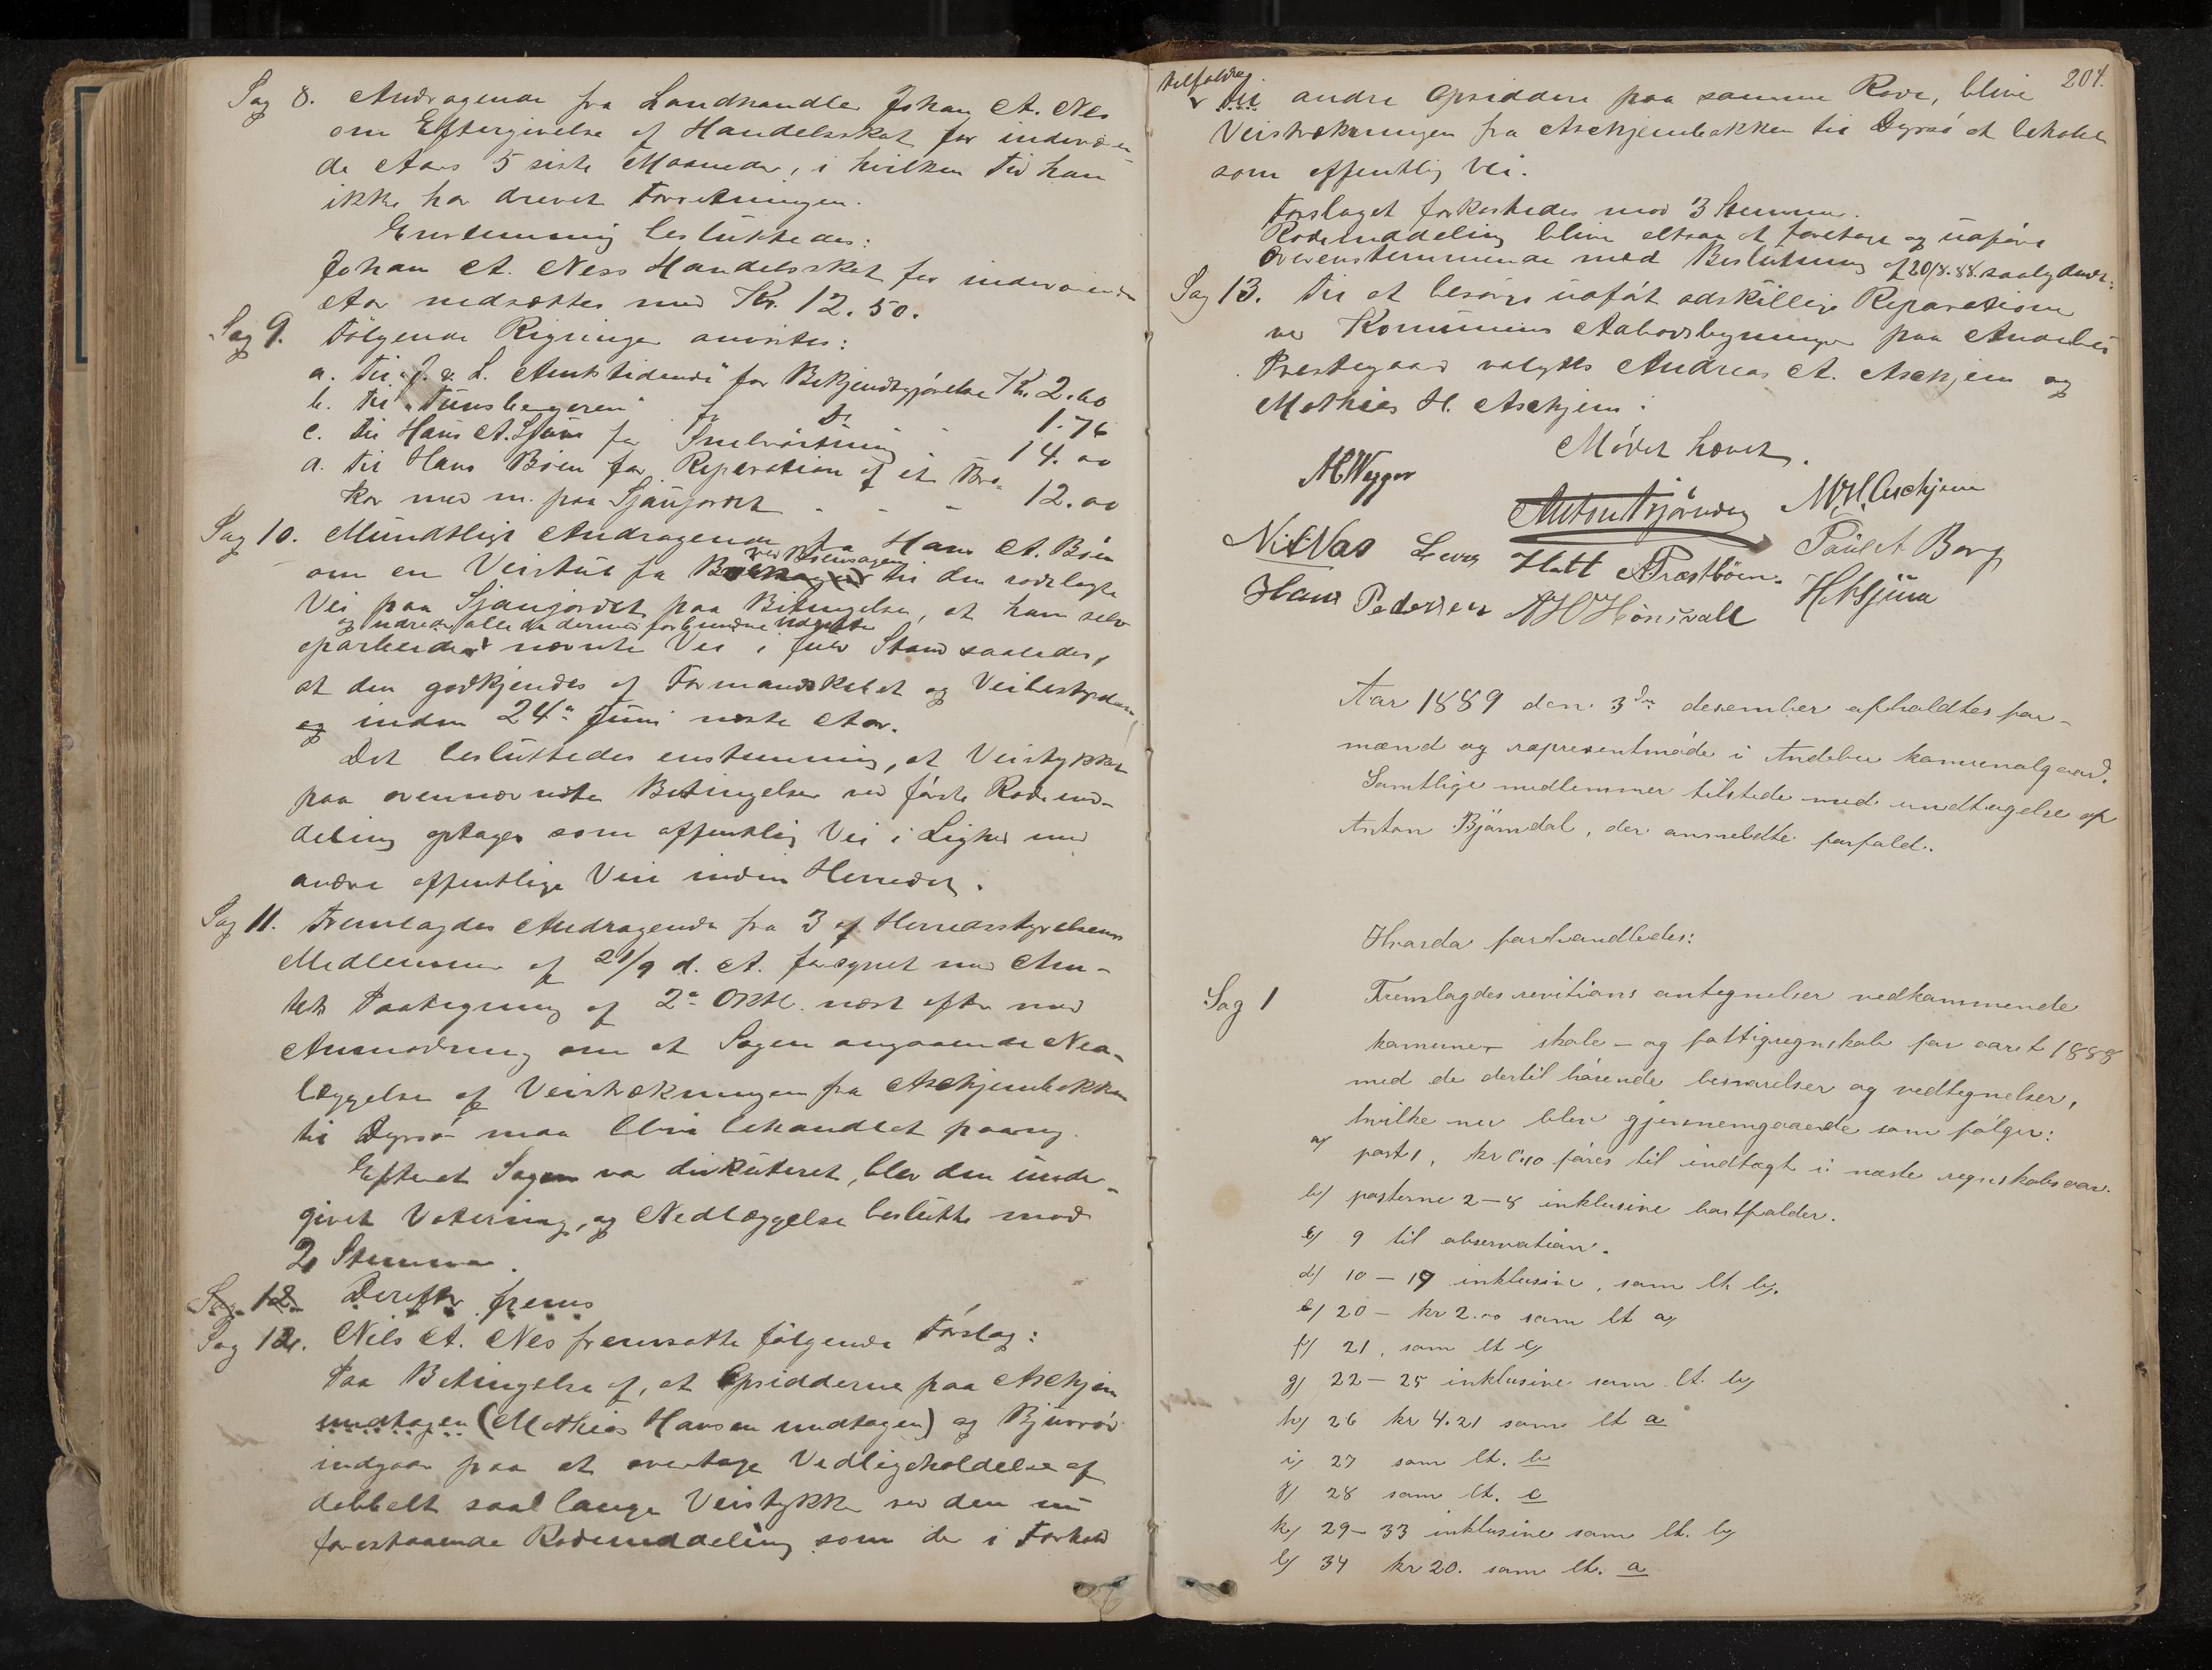 Sag 8. Andragende fra Landhandler Johan A. Nes
om Eftergivelse af Handelsskat for indeværen-
de Aars 5 siste Maaneder, i hvilken Tid han
ikke har drevet Forretningen.
Enstemmig besluttedes:
Johan A. Ness Handelsskat for indeværende
Aar nedsættes med Kr. 12.50.
Sag 9. Følgende Regninger anvistes:
a. Til "J. & L. Amtstidende" for Bekjendtgjørelse Kr. 2.60
b. Til "Tunsbergeren" for Do 1.76
c. Til Hans A. Sjue for 14.00
d. Til Hans Bøen for Reperation af et Bro-
kar med m. paa Sjuejordet - - - 12.00
Sag 10. Mundtligt Andragende fra Hans A. Bøen
om en Veistub fra ved Bøensagen til den rodelagte
Vei paa Sjuejordet paa Betingelse, at han selv
og udreder alle de dermed forbundne Udgifter
oparbeider nævnte Vei i fuld Stand saaledes,
at den godkjendes af Formandskabet og Veibestyrelsen,
og inden 24de Juni næste Aar.
Det besluttedes enstemmig, at Veistykket
paa ovennævnte Betingelser ved første Rodeind-
deling optages som offentlig Vei i Lighed med
andre offentlige Veie inden Herredet.
Sag 11. Fremlagdes Andragende fra 3 af Herredsstyrelsens
Medlemmer af 21/9 d. A. forsynet med Am-
tets Paategning af 2de Oktb. næst efter med
Anmodning om at Sagen angaaende Ned-
læggelse af Veistrækningen fra Askjembakken
til Dyrsø maa blive behandlet paany.
Efterat Sagen var diskuteret, blev den unde-
givet Votering, og Nedlæggelse beslutte mod
2 Stemmer.
Sag 12. Derefter frems
Sag 12. Nils A. Nes fremsatte følgende Forslag:
Paa Betingelse af, at Opsidderne paa Askjem
undtagen (Mathias Hansen undtagen) og Bjuerød
indgaar paa at overtage Vedligeholdelse af
dobbelt saa lange Veistykke ved den nu
forestaaende Rodeinddeling som de i Forhold
204.
tilfalder
til andre Opsiddere paa samme Rode, blive
Veistrækningen fra Askjembakken til Dyrsø at beholde
som offentlig Vei.
Forslaget forkastedes mod 3 Stemmer.
Rodeinddeling bliver altsaa at foretage og udføre
overenstemmende med Beslutning af 20/8. 88. saalydende:
Sag 13. Til at besørge udført adskillige Reparationer
ved Kommunens Aabodsbygninger paa Andebu
Prestegaard valgtes Andreas A. Askjem og
Mathias H. Askjem.
Mødet hævet.
Anton Bjørndal M. H. Aschjem
Nils A Nas Lars Hott A. Præstbøen. Paul A Borg
Hans Pedersen A H Hønsvall H. A. Sjue
Aar 1889 den 3de desember afholdtes for-
mænd og representmøde i Andebu komunalgaard.
Samtlige medlemmer tilstede med undtagelse af
Anton Bjørndal, der anmeldte forfald.
Hvorda forhandledes:
Sag 1 Fremlagdes revitions antegnelser vedkommende
komune- skole- og fattigregnskab for aaret 1888
med de dertil hørende besvarelser og vedtegnelser,
hvilke nu blev gjennemgaaede som følger:
a) post 1, kr 0.10 føres til indtægt i næste regnskabsaar.
b) posterne 2-8 inklusive bortfalder.
c) 9 til observation.
d) 10-19 inklusive, som lt b).
e) 20 - kr 2.00 som lt a)
f) 21, som lt c)
g) 22-25 inklusive som lt. b)
h) 26 kr 4.21 som lt a
i) 27 som lt. b
j) 28 som lt. c
k) 29-33 inklusive som lt. b)
l) 34 kr 20. som lt. a